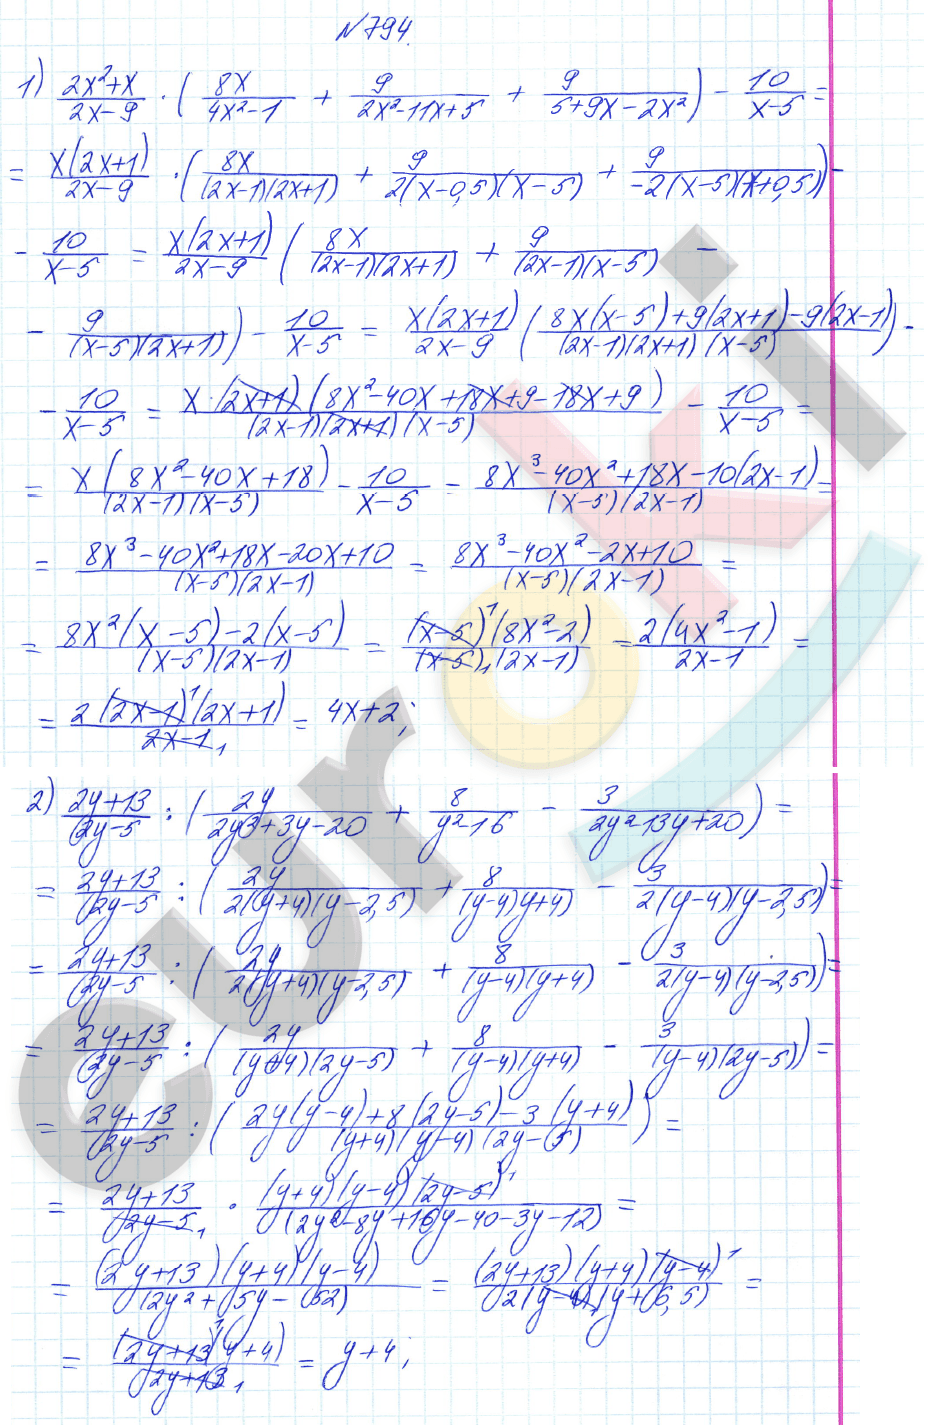 №794.
1) (2x²+x)/(2x-9) · (8x/(4x²-1) + 9/(2x²-11x+5) + 9/(5+9x-2x²)) - 10/(x-5) =
= x(2x+1)/(2x-9) · (8x/((2x-1)(2x+1)) + 9/(2(x-0,5)(x-5)) + 9/(-2(x-5)(x+0,5))) -
- 10/(x-5) = x(2x+1)/(2x-9) (8x/((2x-1)(2x+1)) + 9/((2x-1)(x-5)) -
- 9/((x-5)(2x+1))) - 10/(x-5) = x(2x+1)/(2x-9) (8x(x-5)+9(2x+1)-9(2x-1))/((2x-1)(2x+1)(x-5))) -
- 10/(x-5) = x·(2x+1)(8x²-40x+18x+9-18x+9)/((2x-1)(2x+1)(x-5)) - 10/(x-5) =
= x(8x²-40x+18)/((2x-1)(x-5)) - 10/(x-5) = (8x³-40x²+18x-10(2x-1))/((x-5)(2x-1)) =
= (8x³-40x²+18x-20x+10)/((x-5)(2x-1)) = (8x³-40x²-2x+10)/((x-5)(2x-1)) =
= (8x²(x-5)-2(x-5))/((x-5)(2x-1)) = (x-5)¹(8x²-2)/((x-5)₁(2x-1)) = 2(4x²-1)/(2x-1) =
= 2(2x-1)¹(2x+1)/(2x-1)₁ = 4x+2;
2) (2y+13)/(2y-5) : (2y/(2y²+3y-20) + 8/(y²-16) - 3/(2y²-13y+20)) =
= (2y+13)/(2y-5) : (2y/(2(y+4)(y-2,5)) + 8/((y-4)y+4)) - 3/(2(y-4)(y-2,5))) =
= (2y+13)/(2y-5) : (2y/(2(y+4)(y-2,5)) + 8/((y-4)(y+4)) - 3/(2(y-4)(y-2,5))) =
= (2y+13)/(2y-5) : (2y/((y+4)(2y-5)) + 8/((y-4)(y+4)) - 3/((y-4)(2y-5))) =
= (2y+13)/(2y-5) : ((2y(y-4)+8(2y-5)-3(y+4))/((y+4)(y-4)(2y-5))) =
= (2y+13)/(2y-5)₁ · (y+4)(y-4)(2y-5)¹/(2y²-8y+16y-40-3y-12) =
= (2y+13)(y+4)(y-4)/(2y²+5y-52) = (2y+13)(y+4)(y-4)¹/(2(y-4)₁(y+6,5)) =
= (2y+13)¹(y+4)/(2y+13)₁ = y+4;
euroki